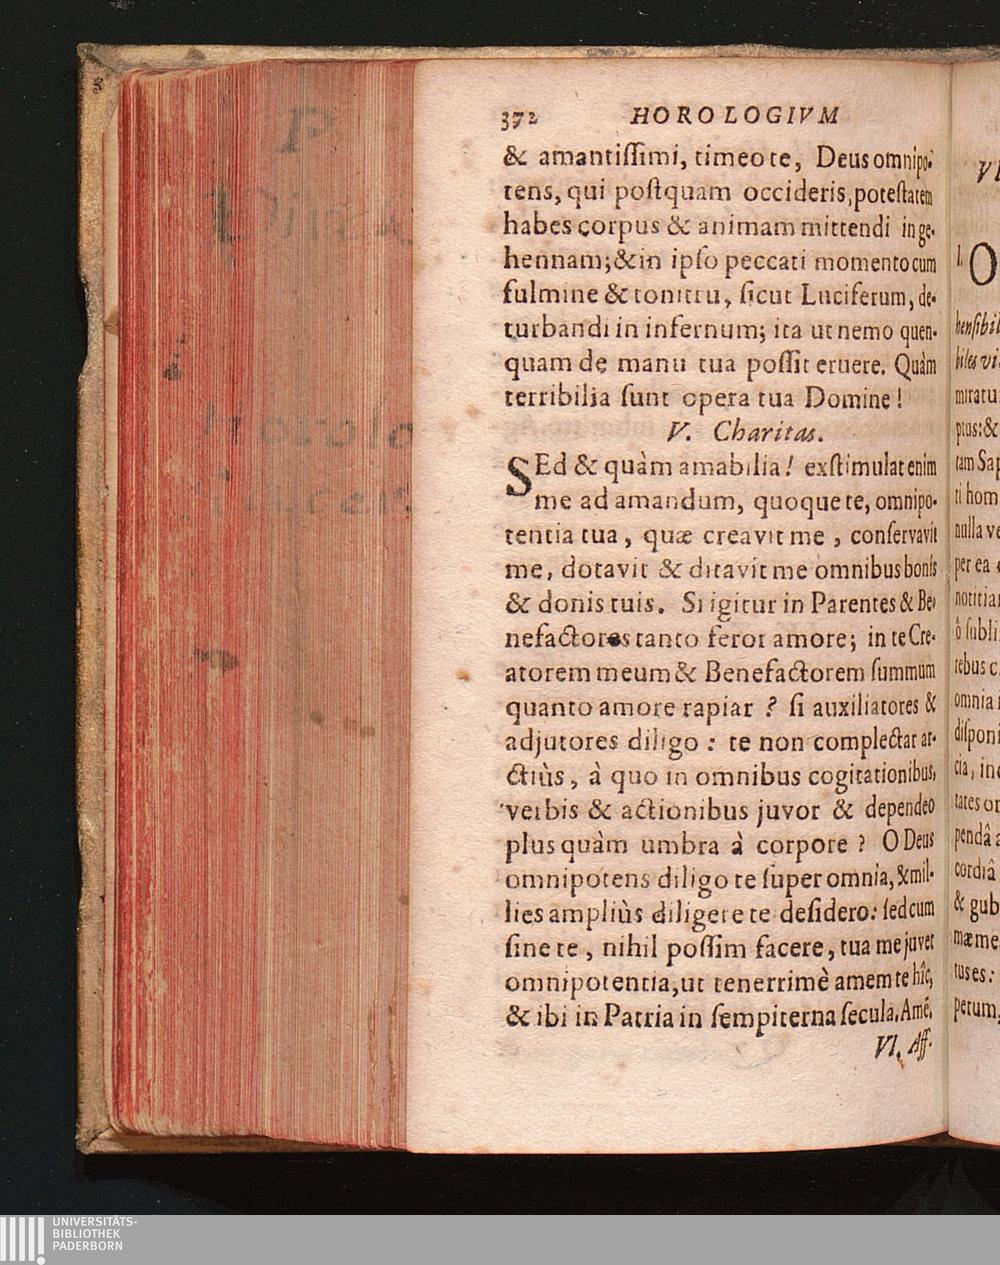 372 HOROLOGIVM
& amantiſſimi, timeo te, Deus omnipo-
tens, qui poſtquam occideris, poteſtatem
habes corpus & animam mittendi in ge-
hennam; & in ipſo peccati momento cum
fulmine & tonitru, ſicut Luciferum, de-
turbandi in infernum; ita ut nemo quen-
quam de manu tua poſſit eruere. Quàm
terribilia ſunt opera tua Domine!
V. Charitas.
SEd & quàm amabilia! exſtimulat enim
me ad amandum, quoque te, omnipo-
tentia tua, quæ creavit me, conſervavit
me, dotavit & ditavit me omnibus bonis
& donis tuis. Si igitur in Parentes & Be-
nefactores tanto feror amore; in te Cre-
atorem meum & Benefactorem ſummum
quanto amore rapiar? ſi auxiliatores &
adjutores diligo: te non complectar ar-
ctiùs, à quo in omnibus cogitationibus,
verbis & actionibus juvor & dependeo
plus quàm umbra à corpore? O Deus
omnipotens diligo te ſuper omnia, & mil-
lies ampliùs diligere te deſidero: ſed cum
ſine te, nihil poſſim facere, tua me juvet
omnipotentia, ut tenerrimè amem te hîc,
& ibi in Patria in ſempiterna ſecula. Amē.
VI. Aff.
VI
I. O
henſibil
biles vi
miratu
ptus: &
tam Sap
ti hom
nulla ve
per ea
notitia
ô ſubli
rebus c
omnia i
diſponi
cia, in
tates or
pendâ a
cordiâ
& gub
mæ me
tus es:
petum,
UNIVERSITÄTS-
BIBLIOTHEK
PADERBORN